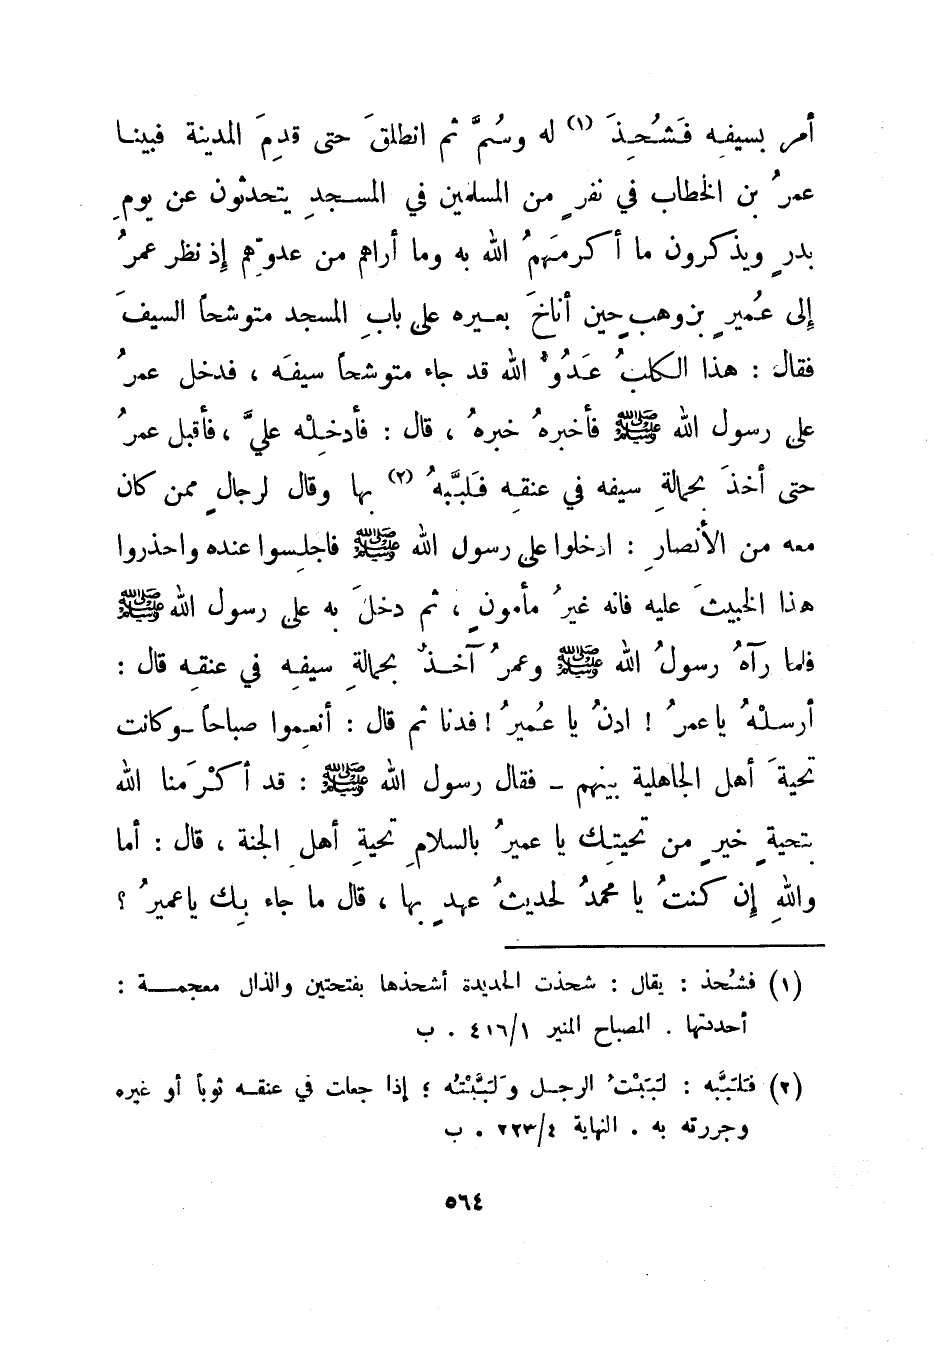 أمر بسيفه فَشُحِذَ (١) له وسُمَّ ثم انطلقَ حتى قدِمَ المدينة فبينا
عمرُ بن الخطاب في نفرٍ من المسلمين في المسجدِ يتحدثون عن يومِ
بدرٍ ويذكرون ما أكرمَهمُ الله به وما أراهم من عدوّهِم إِذ نظر عمرُ
إِلى عُميرٍ بن وهبٍ حين أناخَ بعيره على بابِ المسجد متوشحاً السيفَ
فقال : هذا الكلبُ عَدُوُّ الله قد جاء متوشحاً سيفَه ، فدخل عمرُ
على رسول الله ﷺ فأخبرهُ خبرهُ ، قال : فأدخِلْه عليَّ ، فأقبل عمرُ
حتى أخذَ بحمالةِ سيفه في عنقِه فَلبَّبهُ (٢) بها وقال لرجالٍ ممن كان
معه من الأنصارِ : ادخلوا على رسول الله ﷺ فاجلِسوا عنده واحذروا
هذا الخبيثَ عليه فانه غيرُ مأمونٍ ، ثم دخلَ به على رسول الله ﷺ
فلما رآهُ رسولُ الله ﷺ وعمرُ آخذٌ بحمالةِ سيفِه في عنقِه قال :
أرسلْهُ ياعمرُ ! ادنُ يا عُميرُ ! فدنا ثم قال : أنعِموا صباحاً ــ وكانت
تحيةَ أهل الجاهلية بينهم ــ فقال رسول الله ﷺ : قد أكْرَمنا الله
بتحيةٍ خيرٍ من تحيتِك يا عميرُ بالسلامِ تحيةِ أهلِ الجنة ، قال : أما
واللهِ إِن كنتُ يا محمدُ لحديثُ عهدٍ بها ، قال ما جاء بِك ياعميرُ ؟
(١) فشُحذ : يقال : شحذت الحديدة أشحذها بفتحتين والذال معجمة :
أحددتها . المصباح المنير ٤١٦/١ . ب
(٢) فَلَبَّبه : لَبَبْتُ الرجل وَلَبَّبْتُه ؛ إذا جعلت في عنقه ثوباً أو غيره
وجررته به . النهاية ٢٢٣/٤ . ب
٥٦٤